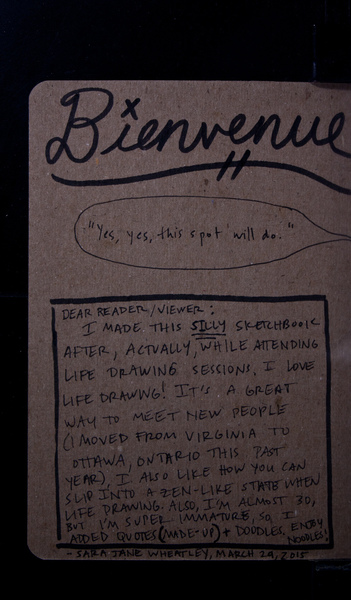 Bienvenue
"Yes, yes, this spot will do."
DEAR READER/VIEWER:
I MADE THIS SILLY SKETCHBOOK
AFTER, ACTUALLY, WHILE ATTENDING
LIFE DRAWING SESSIONS. I LOVE
LIFE DRAWING! IT'S A GREAT
WAY TO MEET NEW PEOPLE
(I MOVED FROM VIRGINIA TO
OTTAWA, ONTARIO THIS PAST
YEAR), I ALSO LIKE HOW YOU CAN
SLIP INTO A ZEN-LIKE STATE WHEN
LIFE DRAWING. ALSO, I'M ALMOST 30,
BUT I'M SUPER IMMATURE, SO I
ADDED QUOTES (MADE-UP) + DOODLES. ENJOY
NOODLES!
- SARA JANE WHEATLEY, MARCH 29, 2015